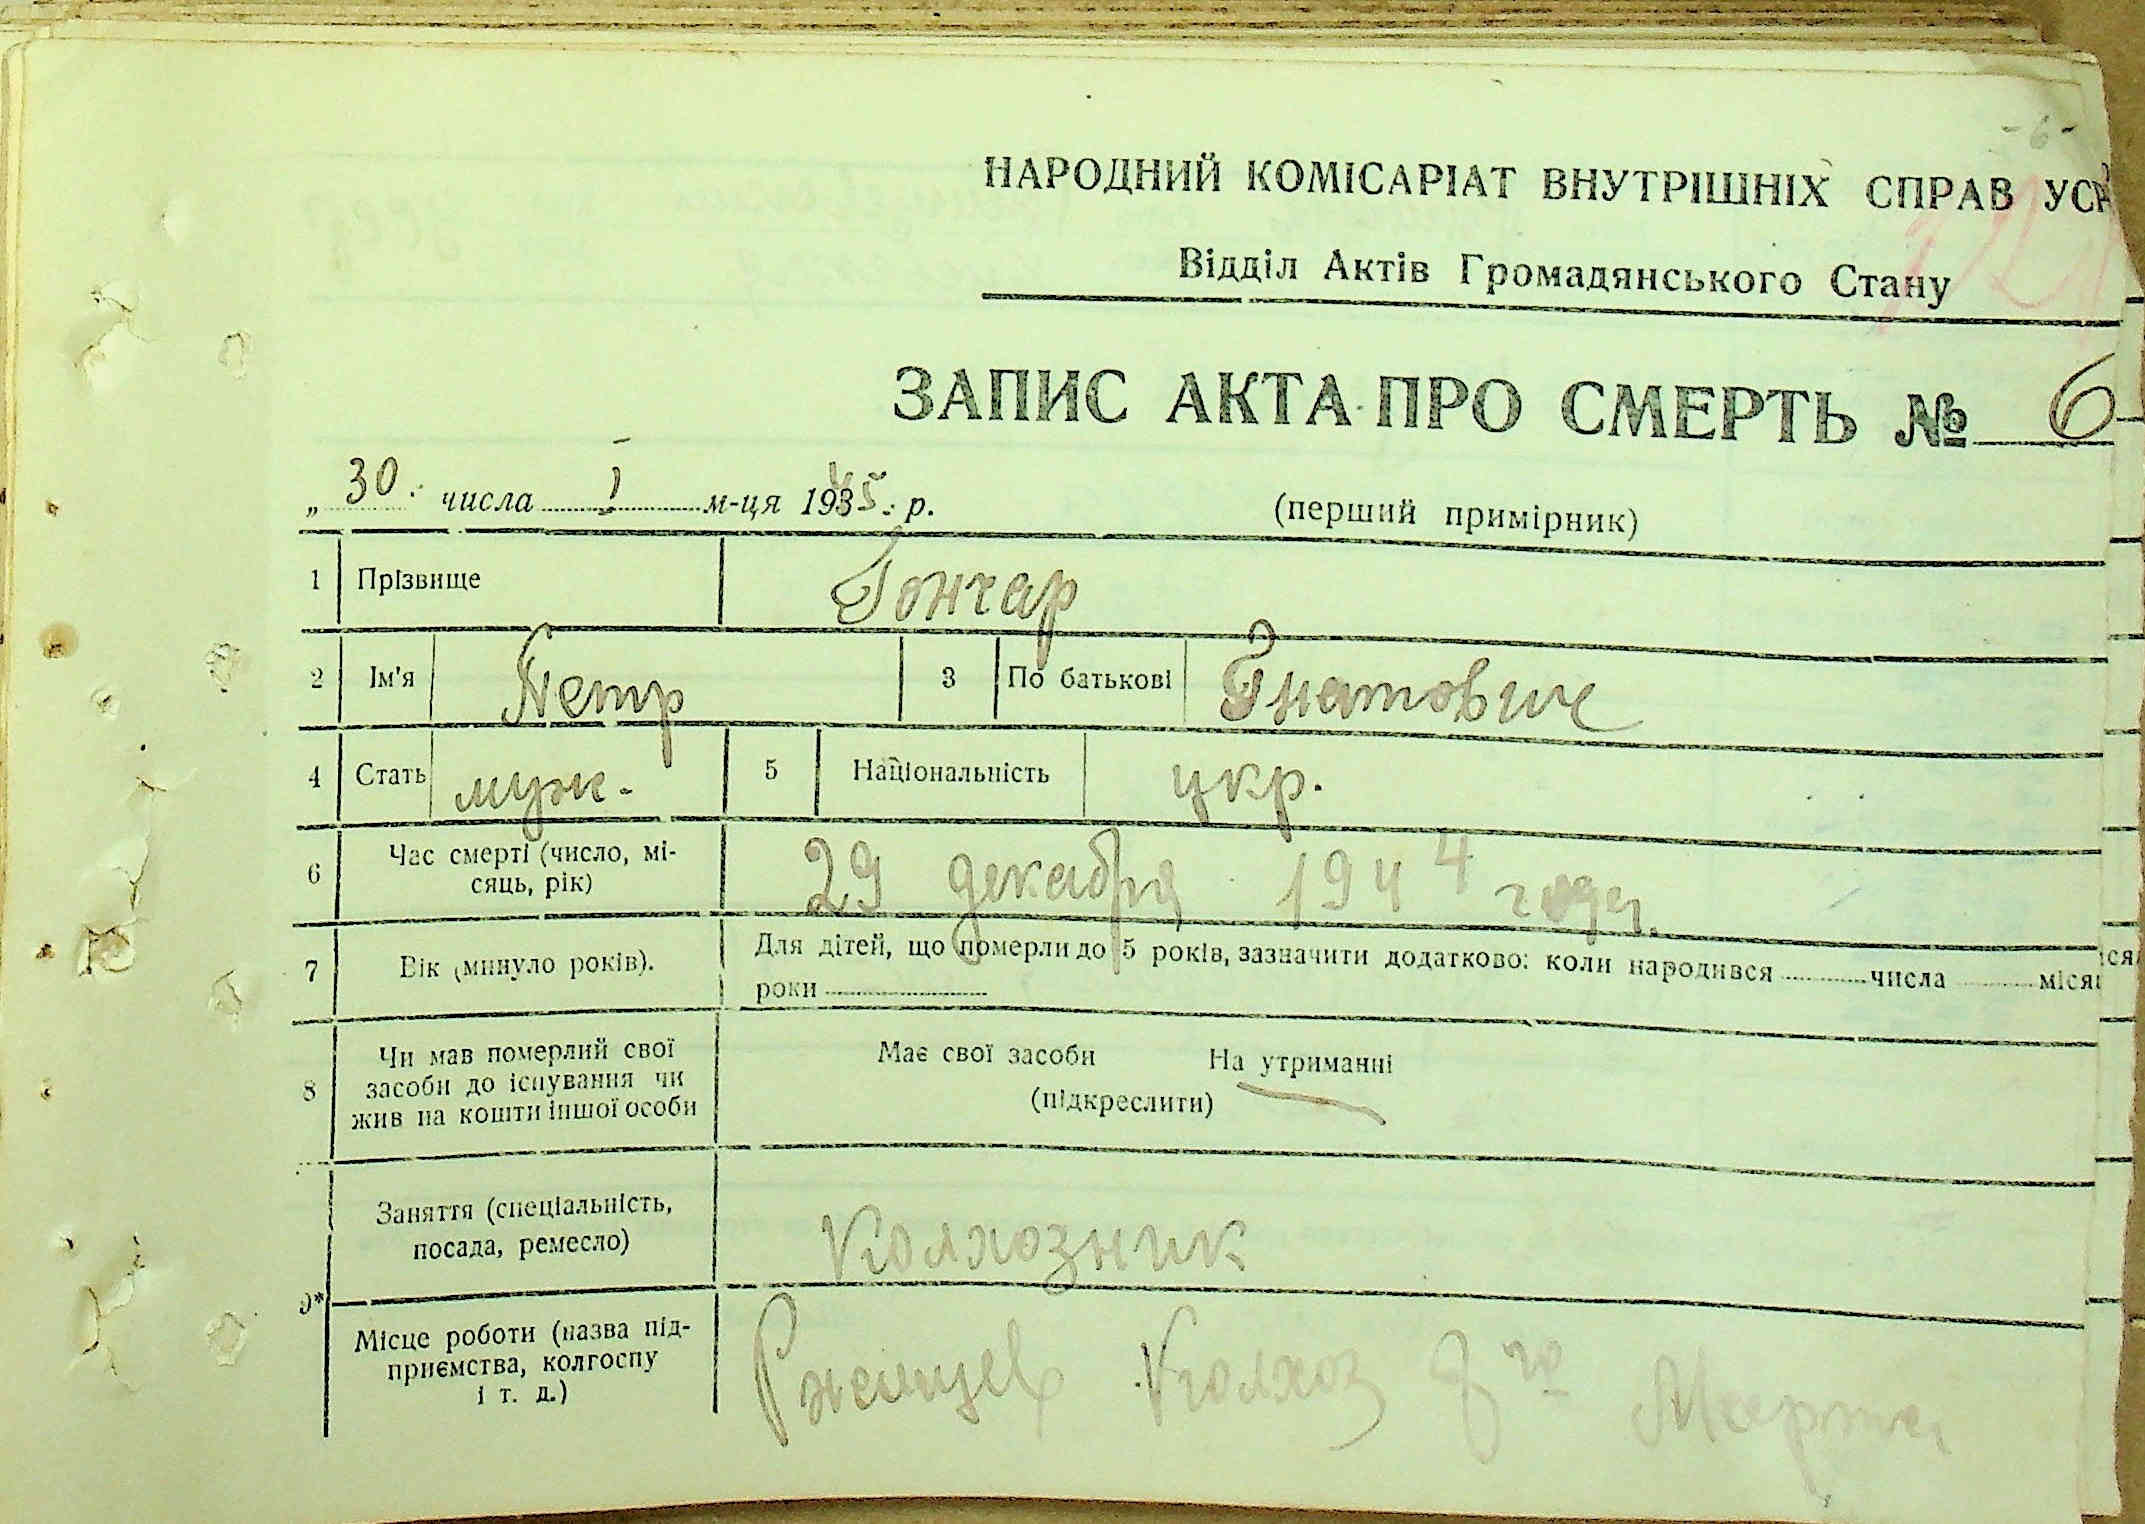 - 6 -
НАРОДНИЙ КОМІСАРІАТ ВНУТРІШНІХ СПРАВ УСР
Відділ Актів Громадянського Стану
ЗАПИС АКТА ПРО СМЕРТЬ № 6
„ 30. числа I м-ця 1945. р. (перший примірник)
1 Прізвище Гончар
2 Ім'я Петр 3 По батькові Гнатович
4 Стать муж. 5 Національність укр.
6 Час смерті (число, мі-
сяць, рік) 29 декабря 1944 года.
7 Вік (минуло років). Для дітей, що померли до 5 років, зазначити додатково: коли народився числа місяц
роки
8 Чи мав померлий свої
засоби до існування чи
жив на кошти іншої особи
Має свої засоби На утриманні
(підкреслити)
9*
Заняття (спеціальність,
посада, ремесло) Колхозник
Місце роботи (назва під-
приємства, колгоспу
і т. д.) Колхоз 8го Марта